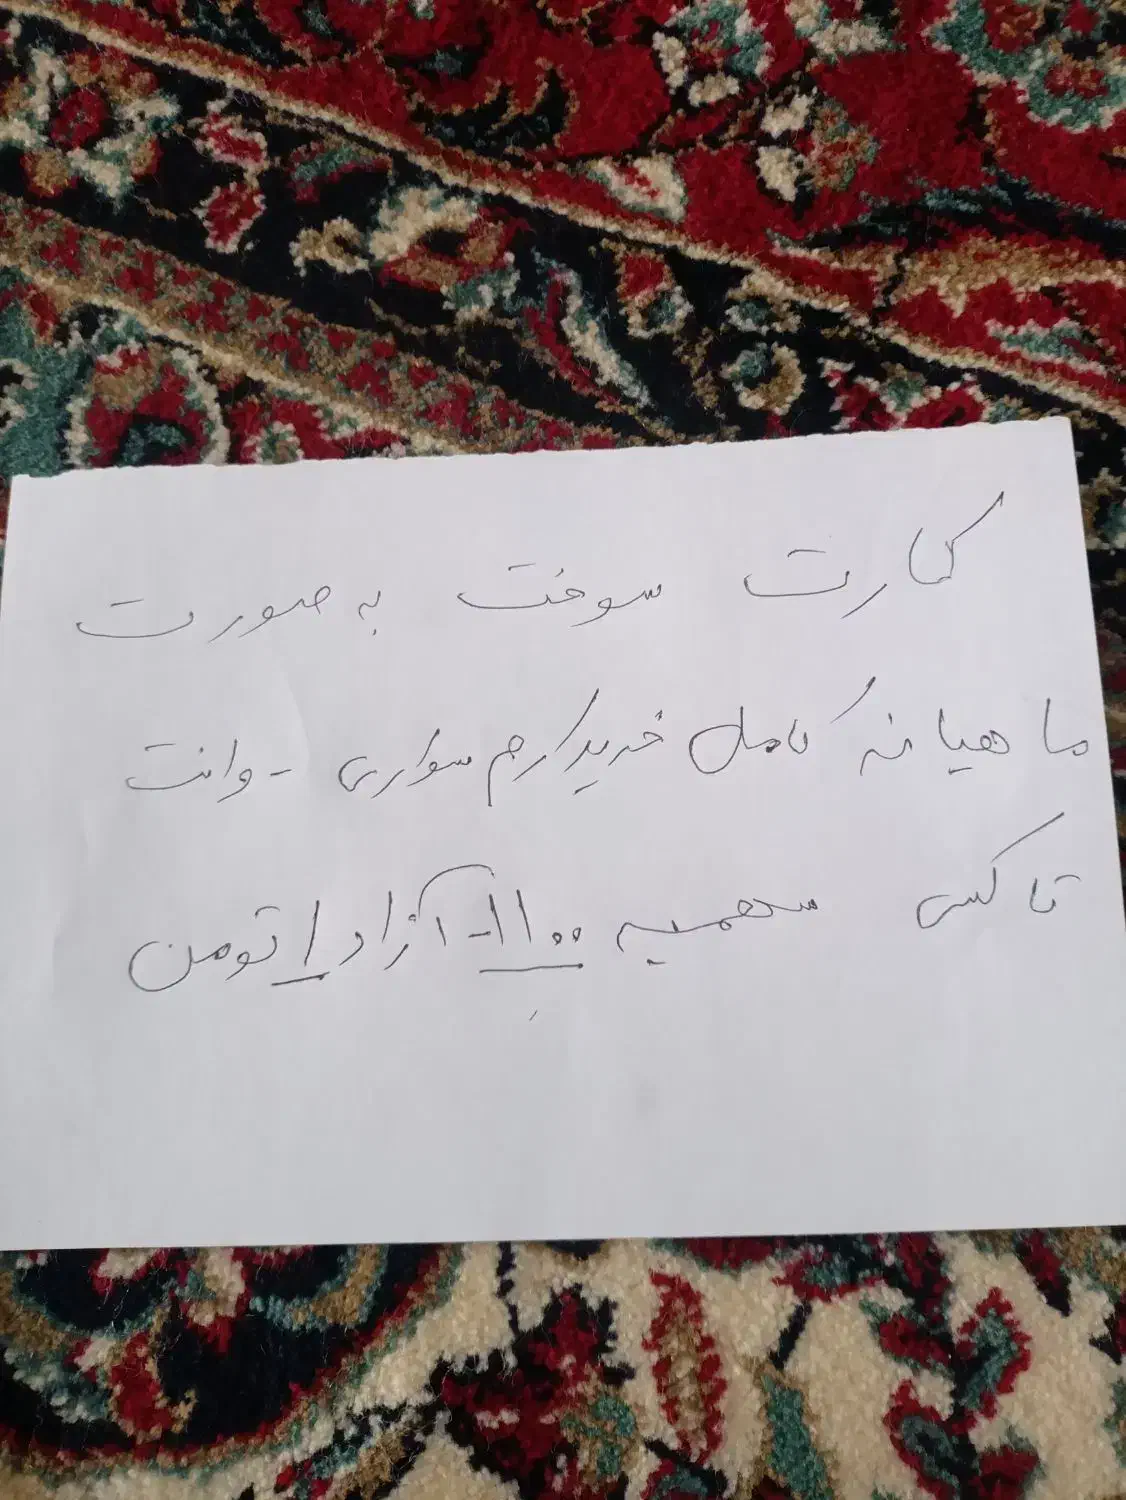 کارت سوخت به صورت
ماهیانه کامل خریدارم سواری - وانت
تاکسی سهمیه ۱۱۰۰ - آزاد ۱ تومن